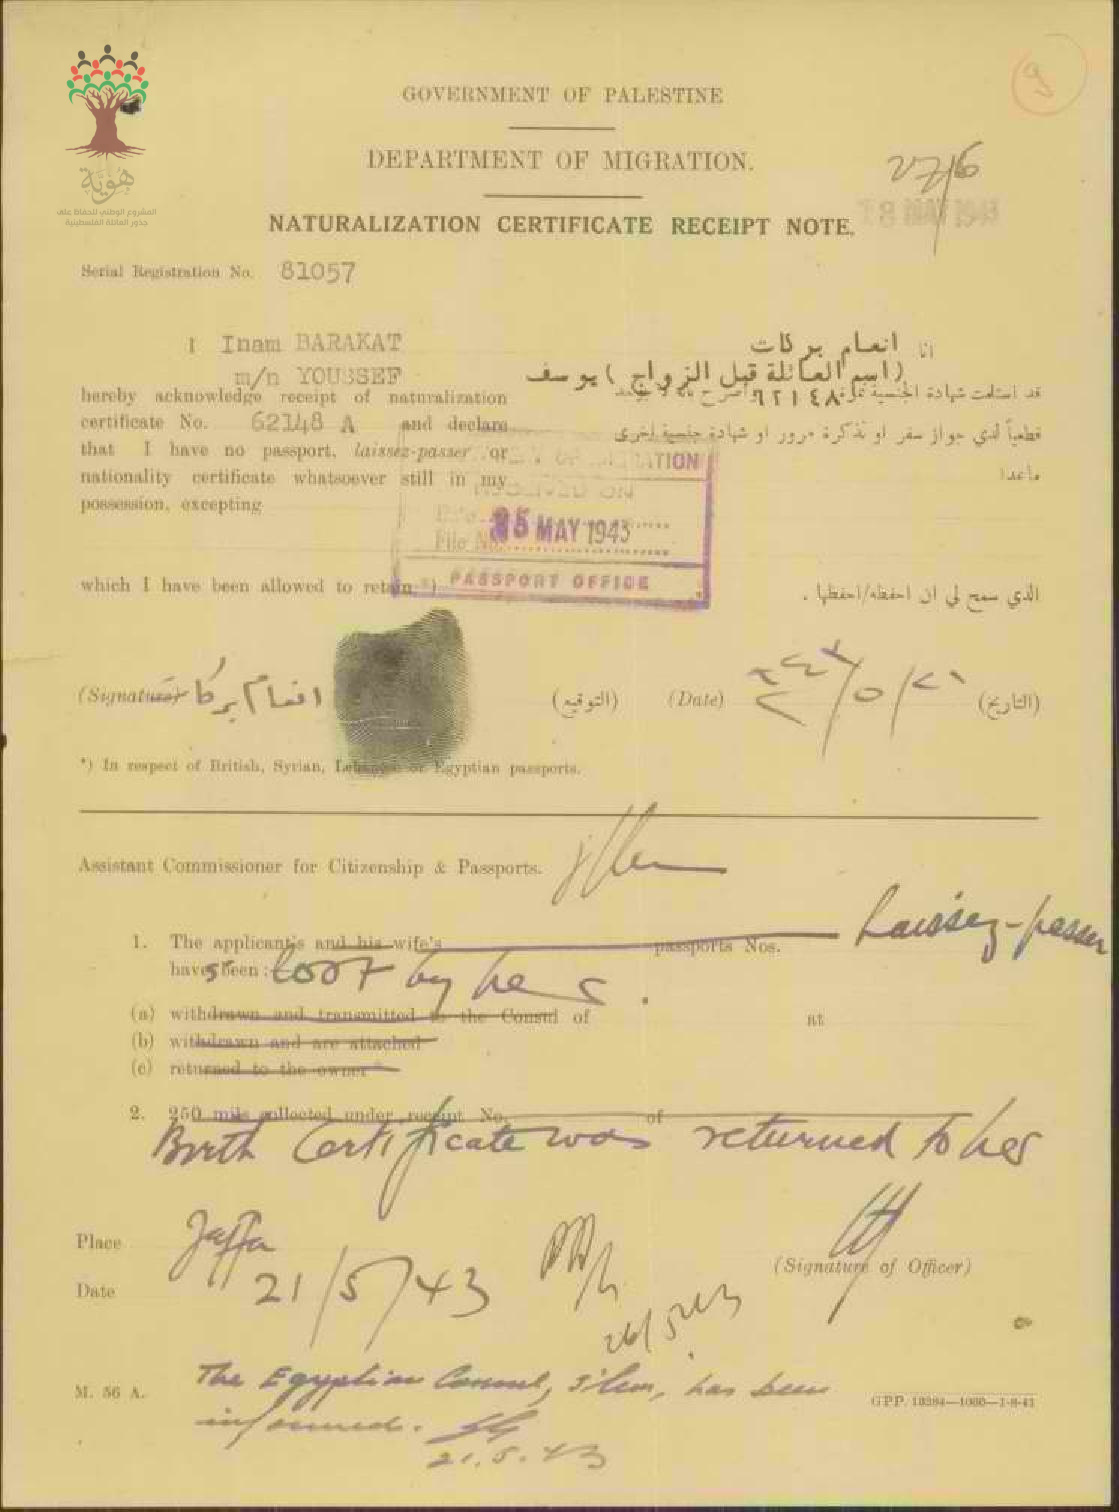 هوية
المشروع الوطني للحفاظ على
جذور العائلة الفلسطينية
9
GOVERNMENT OF PALESTINE
DEPARTMENT OF MIGRATION.
27/6
18 MAY 1943
NATURALIZATION CERTIFICATE RECEIPT NOTE.
Serial Registration No. 81057
I Inam BARAKAT
m/n YOUSSEF
hereby acknowledge receipt of naturalization
certificate No. 62148 A and declare
that I have no passport, laissez-passer or
nationality certificate whatsoever still in my
possession, excepting
which I have been allowed to retain *)
انا انعام بركات
(اسم العائلة قبل الزواج) يوسف
قد استلمت شهادة الجنسية نمرة ٦٢١٤٨
قطعياً لدي جواز سفر او تذكرة مرور او شهادة جنسية اخرى
ماعدا
الذي سمح لي ان احفظه/احفظها .
RECEIVED ON
25 MAY 1943
File No.
PASSPORT OFFICE
(Signature) انعام بركات (التوقيع)
(Date) (التاريخ)
*) In respect of British, Syrian, Lebanese or Egyptian passports.
Assistant Commissioner for Citizenship & Passports.
1. The applicant's and his wife's passports Nos. Laissez-passer
have been : lost by her.
(a) withdrawn and transmitted to the Consul of at
(b) withdrawn and are attached
(c) returned to the owner*
2. 250 mils collected under receipt No. of
Birth Certificate was returned to her
Place Jaffa
(Signature of Officer)
Date 21/5/43
26/5/43
The Egyptian Consul, J'lem, has been
informed.
21.5.43
M. 56 A.
GPP. 10284—1000—1-8-41